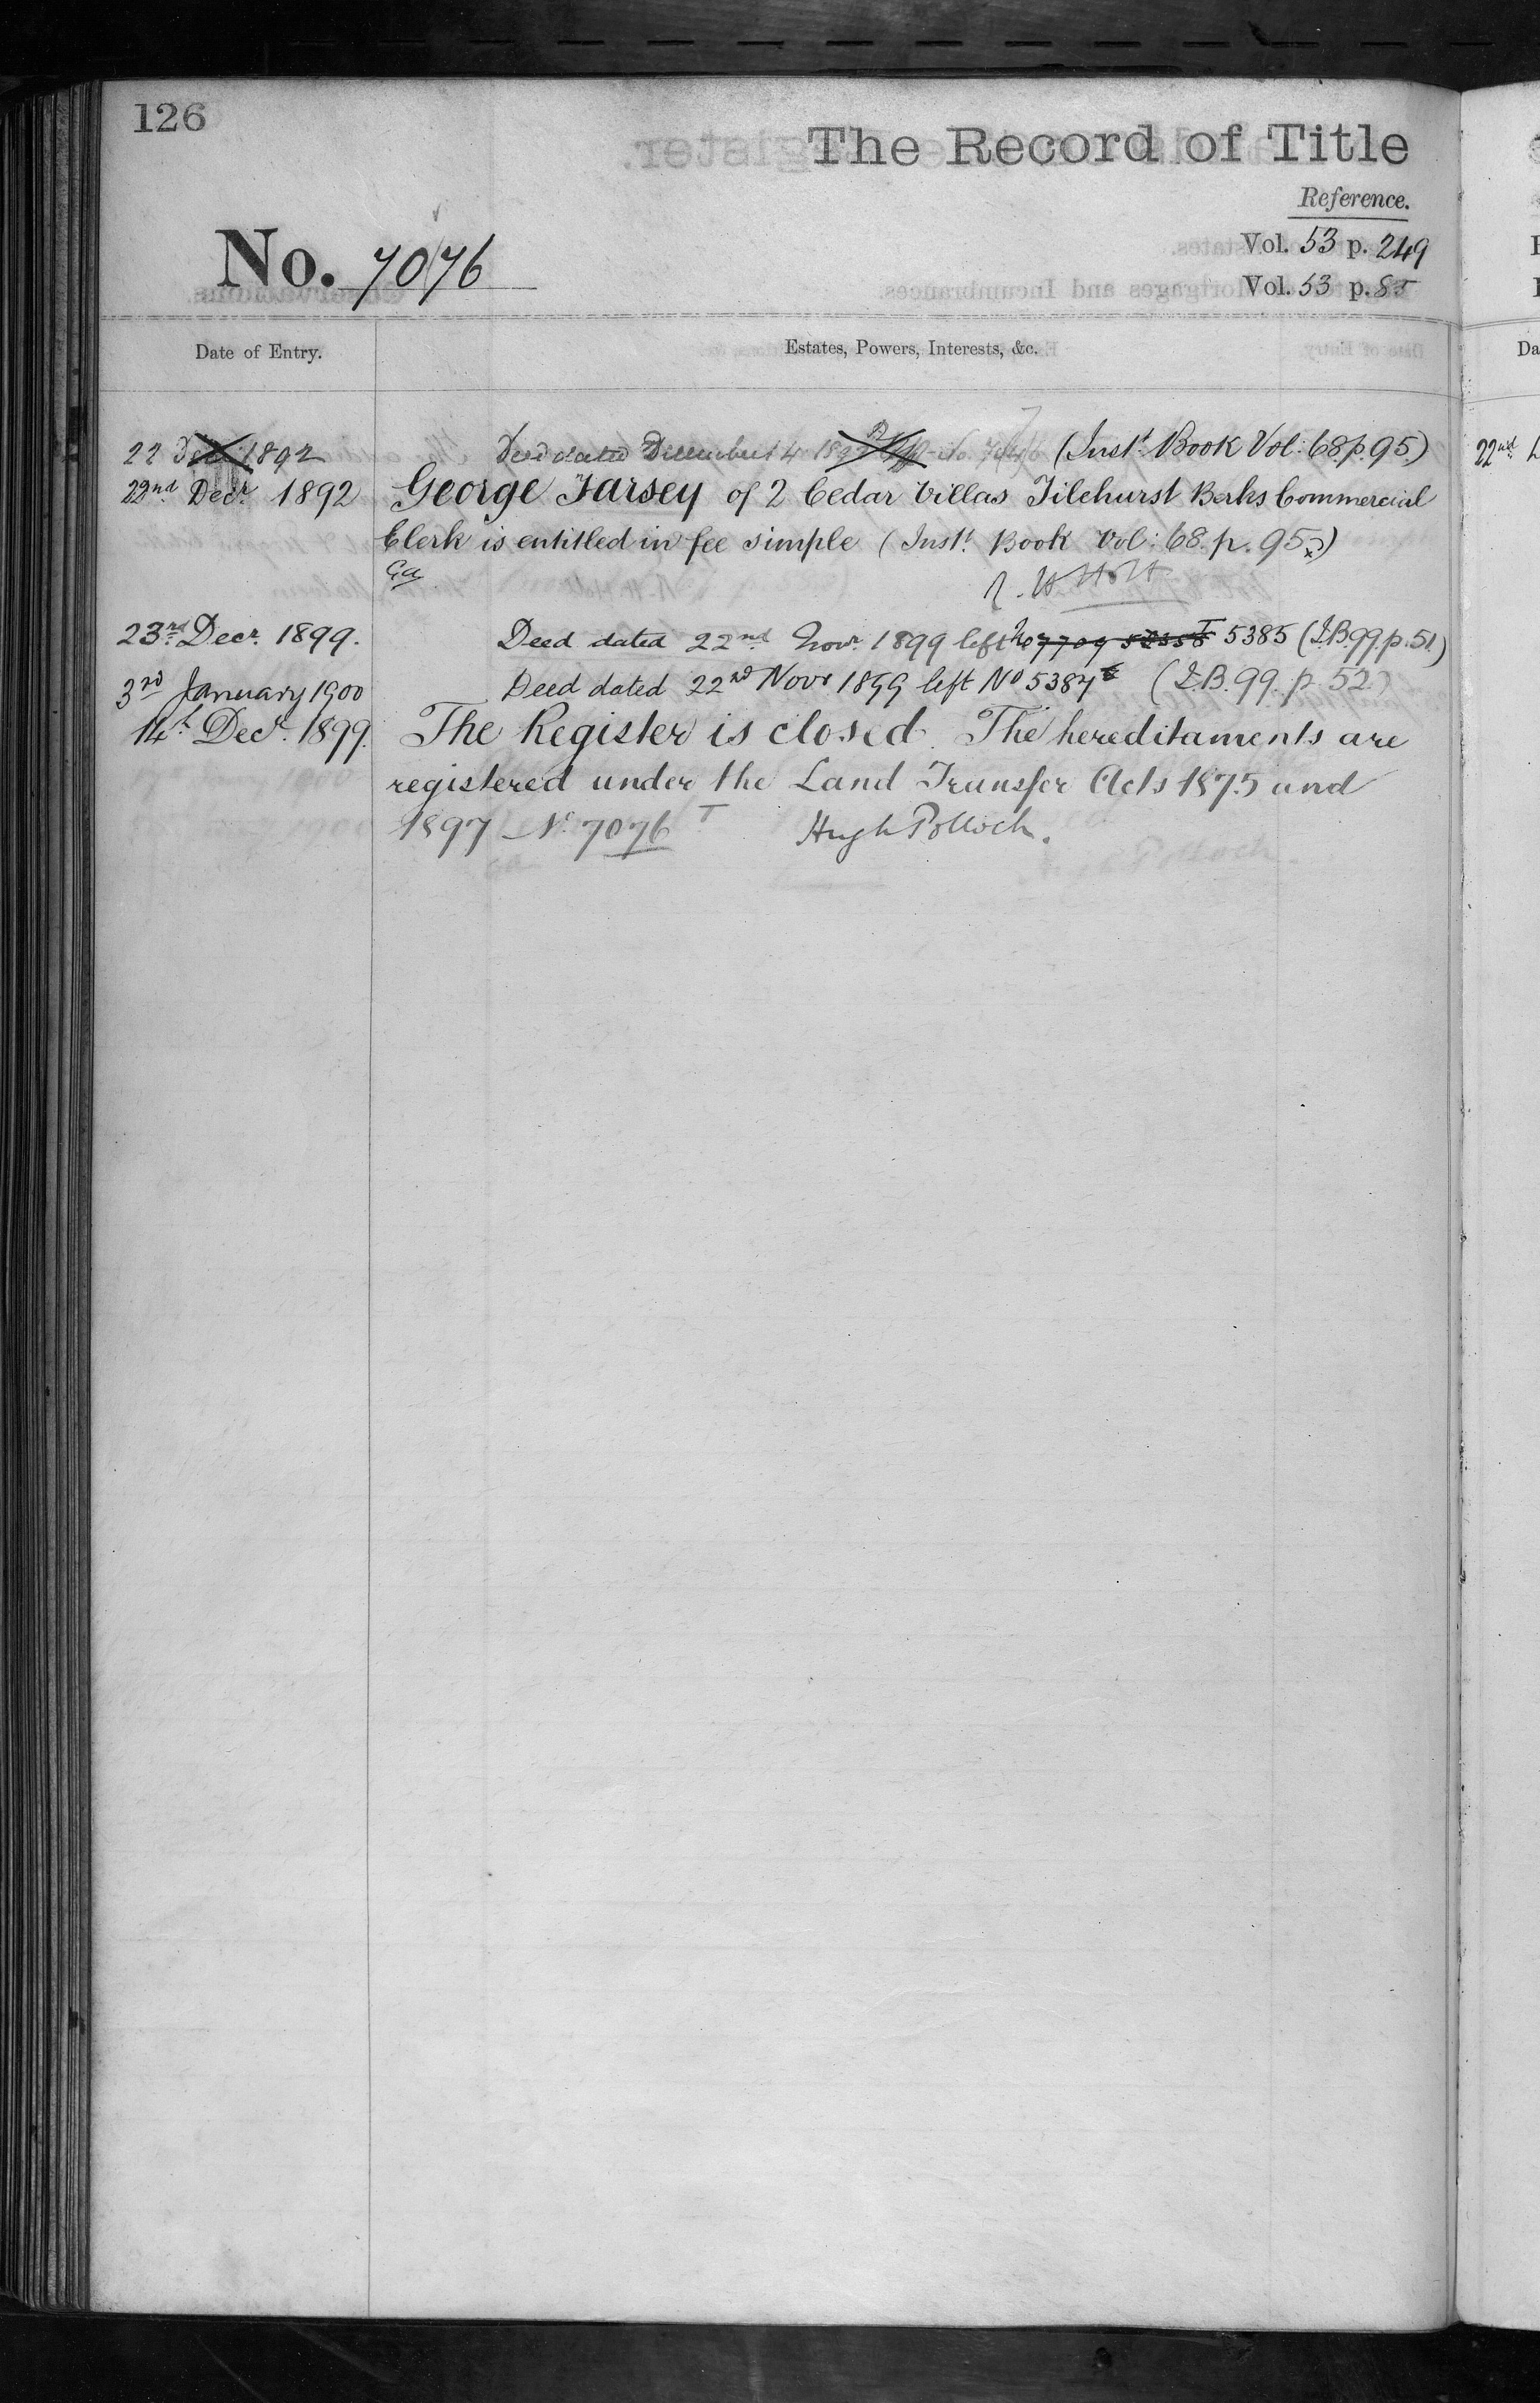 126
The Record of Title
Reference.
No. 7076
Vol. 53 p. 249
Vol. 53 p. 85
Date of Entry.
Estates, Powers, Interests, &c.
22 Decr 1892 Deed dated December 14 1892 (Inst. Book Vol: 68. p. 95.)
22nd Decr. 1892 George Farsey of 2 Cedar Villas Tilehurst Berks Commercial
Clerk is entitled in fee simple (Inst. Book Vol: 68. p. 95.)
Ga
R. W. Holt
23rd Decr. 1899. Deed dated 22nd Novr. 1899 left No 5385 T (I.B. 99. p. 51.)
3rd January 1900 Deed dated 22nd Novr 1899 left No 5384 (I.B. 99. p. 52.)
14th Decr. 1899. The Register is closed. The hereditaments are
registered under the Land Transfer Acts 1875 and
1897 – No. 7076 T Hugh Pollock.
22nd